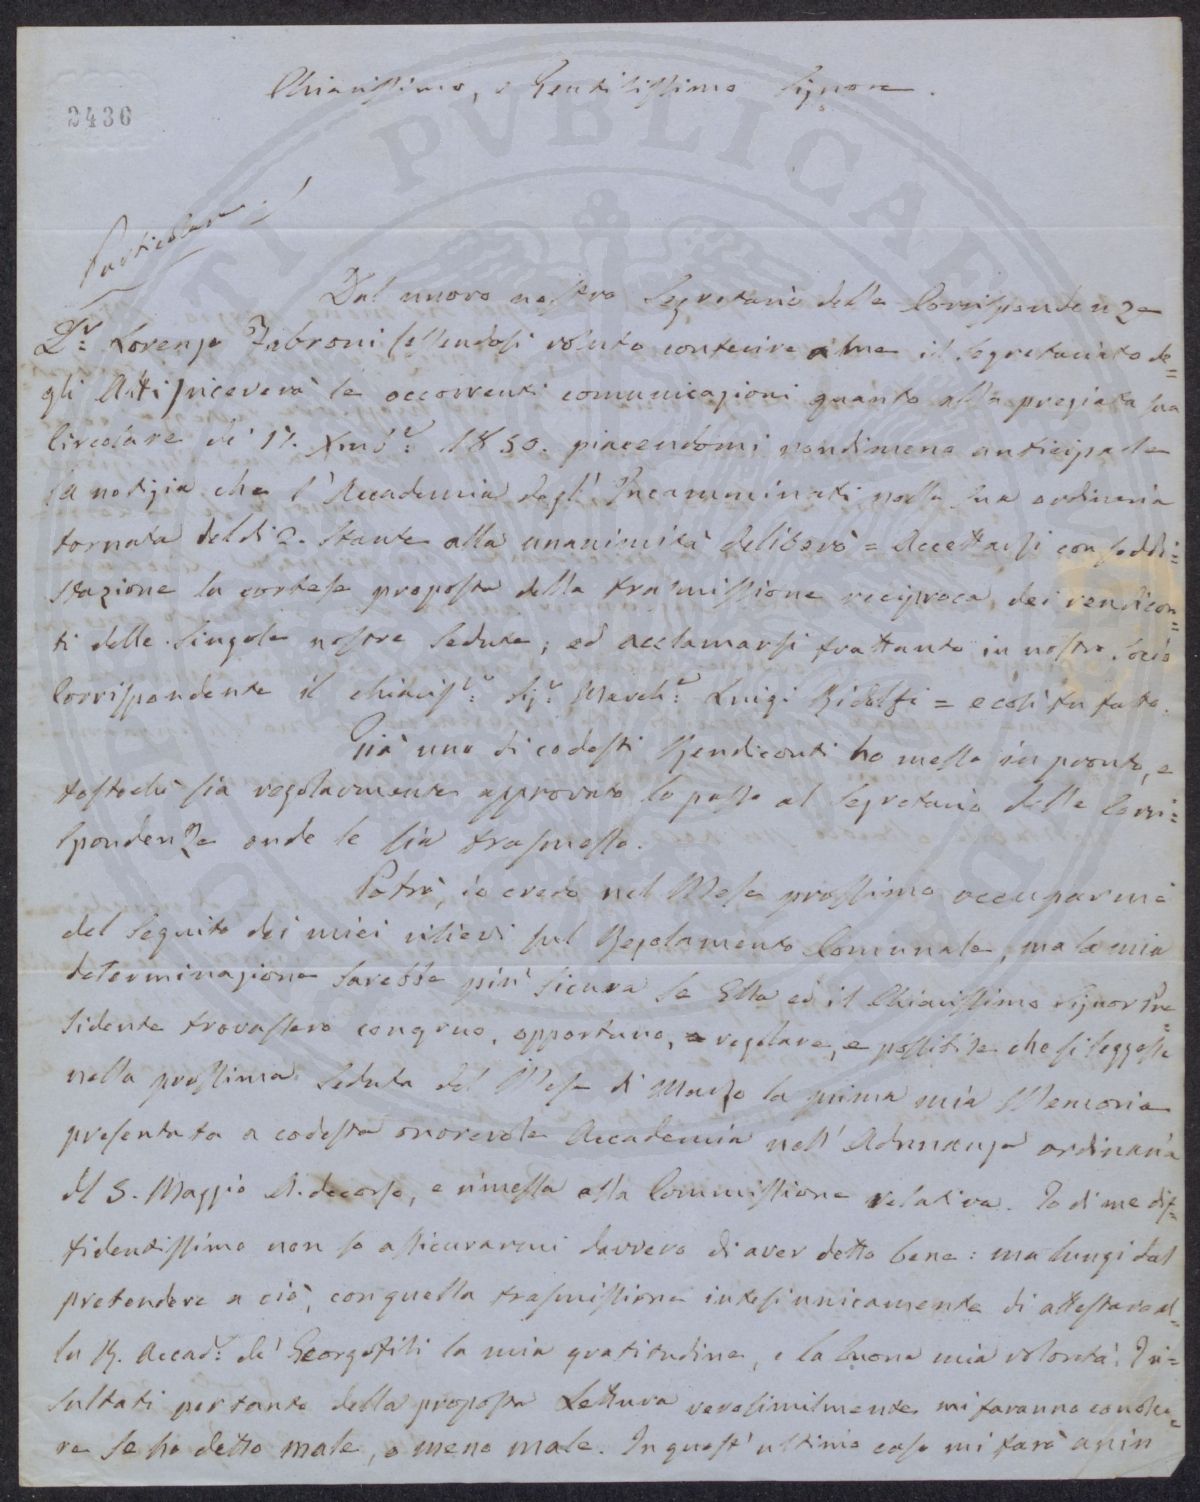 2436
Chiarissimo, e Gentilissimo Signore.
Particolare
Dal nuovo nostro Segretario delle Corrispondenze
Dr. Lorenzo Fabroni (essendosi voluto conferire a me il Segretariato de=
gli Atti) riceverà le occorrenti comunicazioni quanto alla pregiata sua
Circolare de' 17. Xmbre 1850. piacendomi nondimeno anticiparle
la notizia che l'Accademia degl' Incamminati nella sua ordinaria
tornata del dì 2. stante alla unanimità deliberò = Accettarsi con soddi=
sfazione la cortese proposta della trasmissione reciproca dei rendicon=
ti delle singole nostre sedute; ed acclamarsi frattanto in nostro Socio
Corrispondente il chiariss. Sigr. March. Luigi Ridolfi = e così fu fatto.
Già uno di codesti Rendiconti ho messo in pronto, e
tostochè sia regolarmente approvato lo passo al Segretario delle Corri=
spondenze onde le sia trasmesso.
Potrò, io credo nel Mese prossimo occuparmi
del seguito dei miei rilievi sul Regolamento Comunale, ma la mia
determinazione sarebbe più sicura se Ella ed il Chiarissimo Signor Pre=
sidente trovassero congruo, opportuno, regolare, e possibile che si leggesse
nella prossima Seduta del Mese di Marzo la prima mia Memoria
presentata a codesta onorevole Accademia nell' Adunanza ordinaria
del 5. Maggio A. decorso, e rimessa alla Commissione relativa. Io di me dif=
fidentissimo non so assicurarmi davvero di aver detto bene: ma lungi dal
pretendere a ciò, con quella trasmissione intesi unicamente di attestare al=
la R. Accad. de' Georgofili la mia gratitudine, e la buona mia volontà. I ri=
sultati pertanto della proposta Lettura verosimilmente mi faranno conosce=
re se ho detto male, o meno male. In quest' ultimo caso mi farò anim